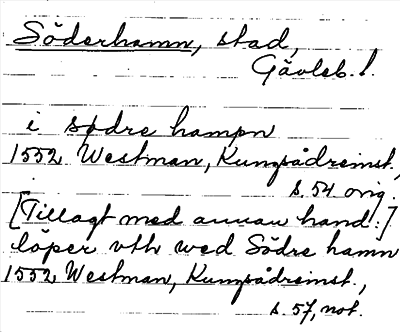 Söderhamn, stad,
Gävleb. l.
i sødre hampn
1552 Westman, Kungsådreinst.,
s. 54 orig.
[Tillagt med annan hand:]
löper vth wed Södre hamn
1552 Westman, Kungsådreinst.,
s. 57, not.